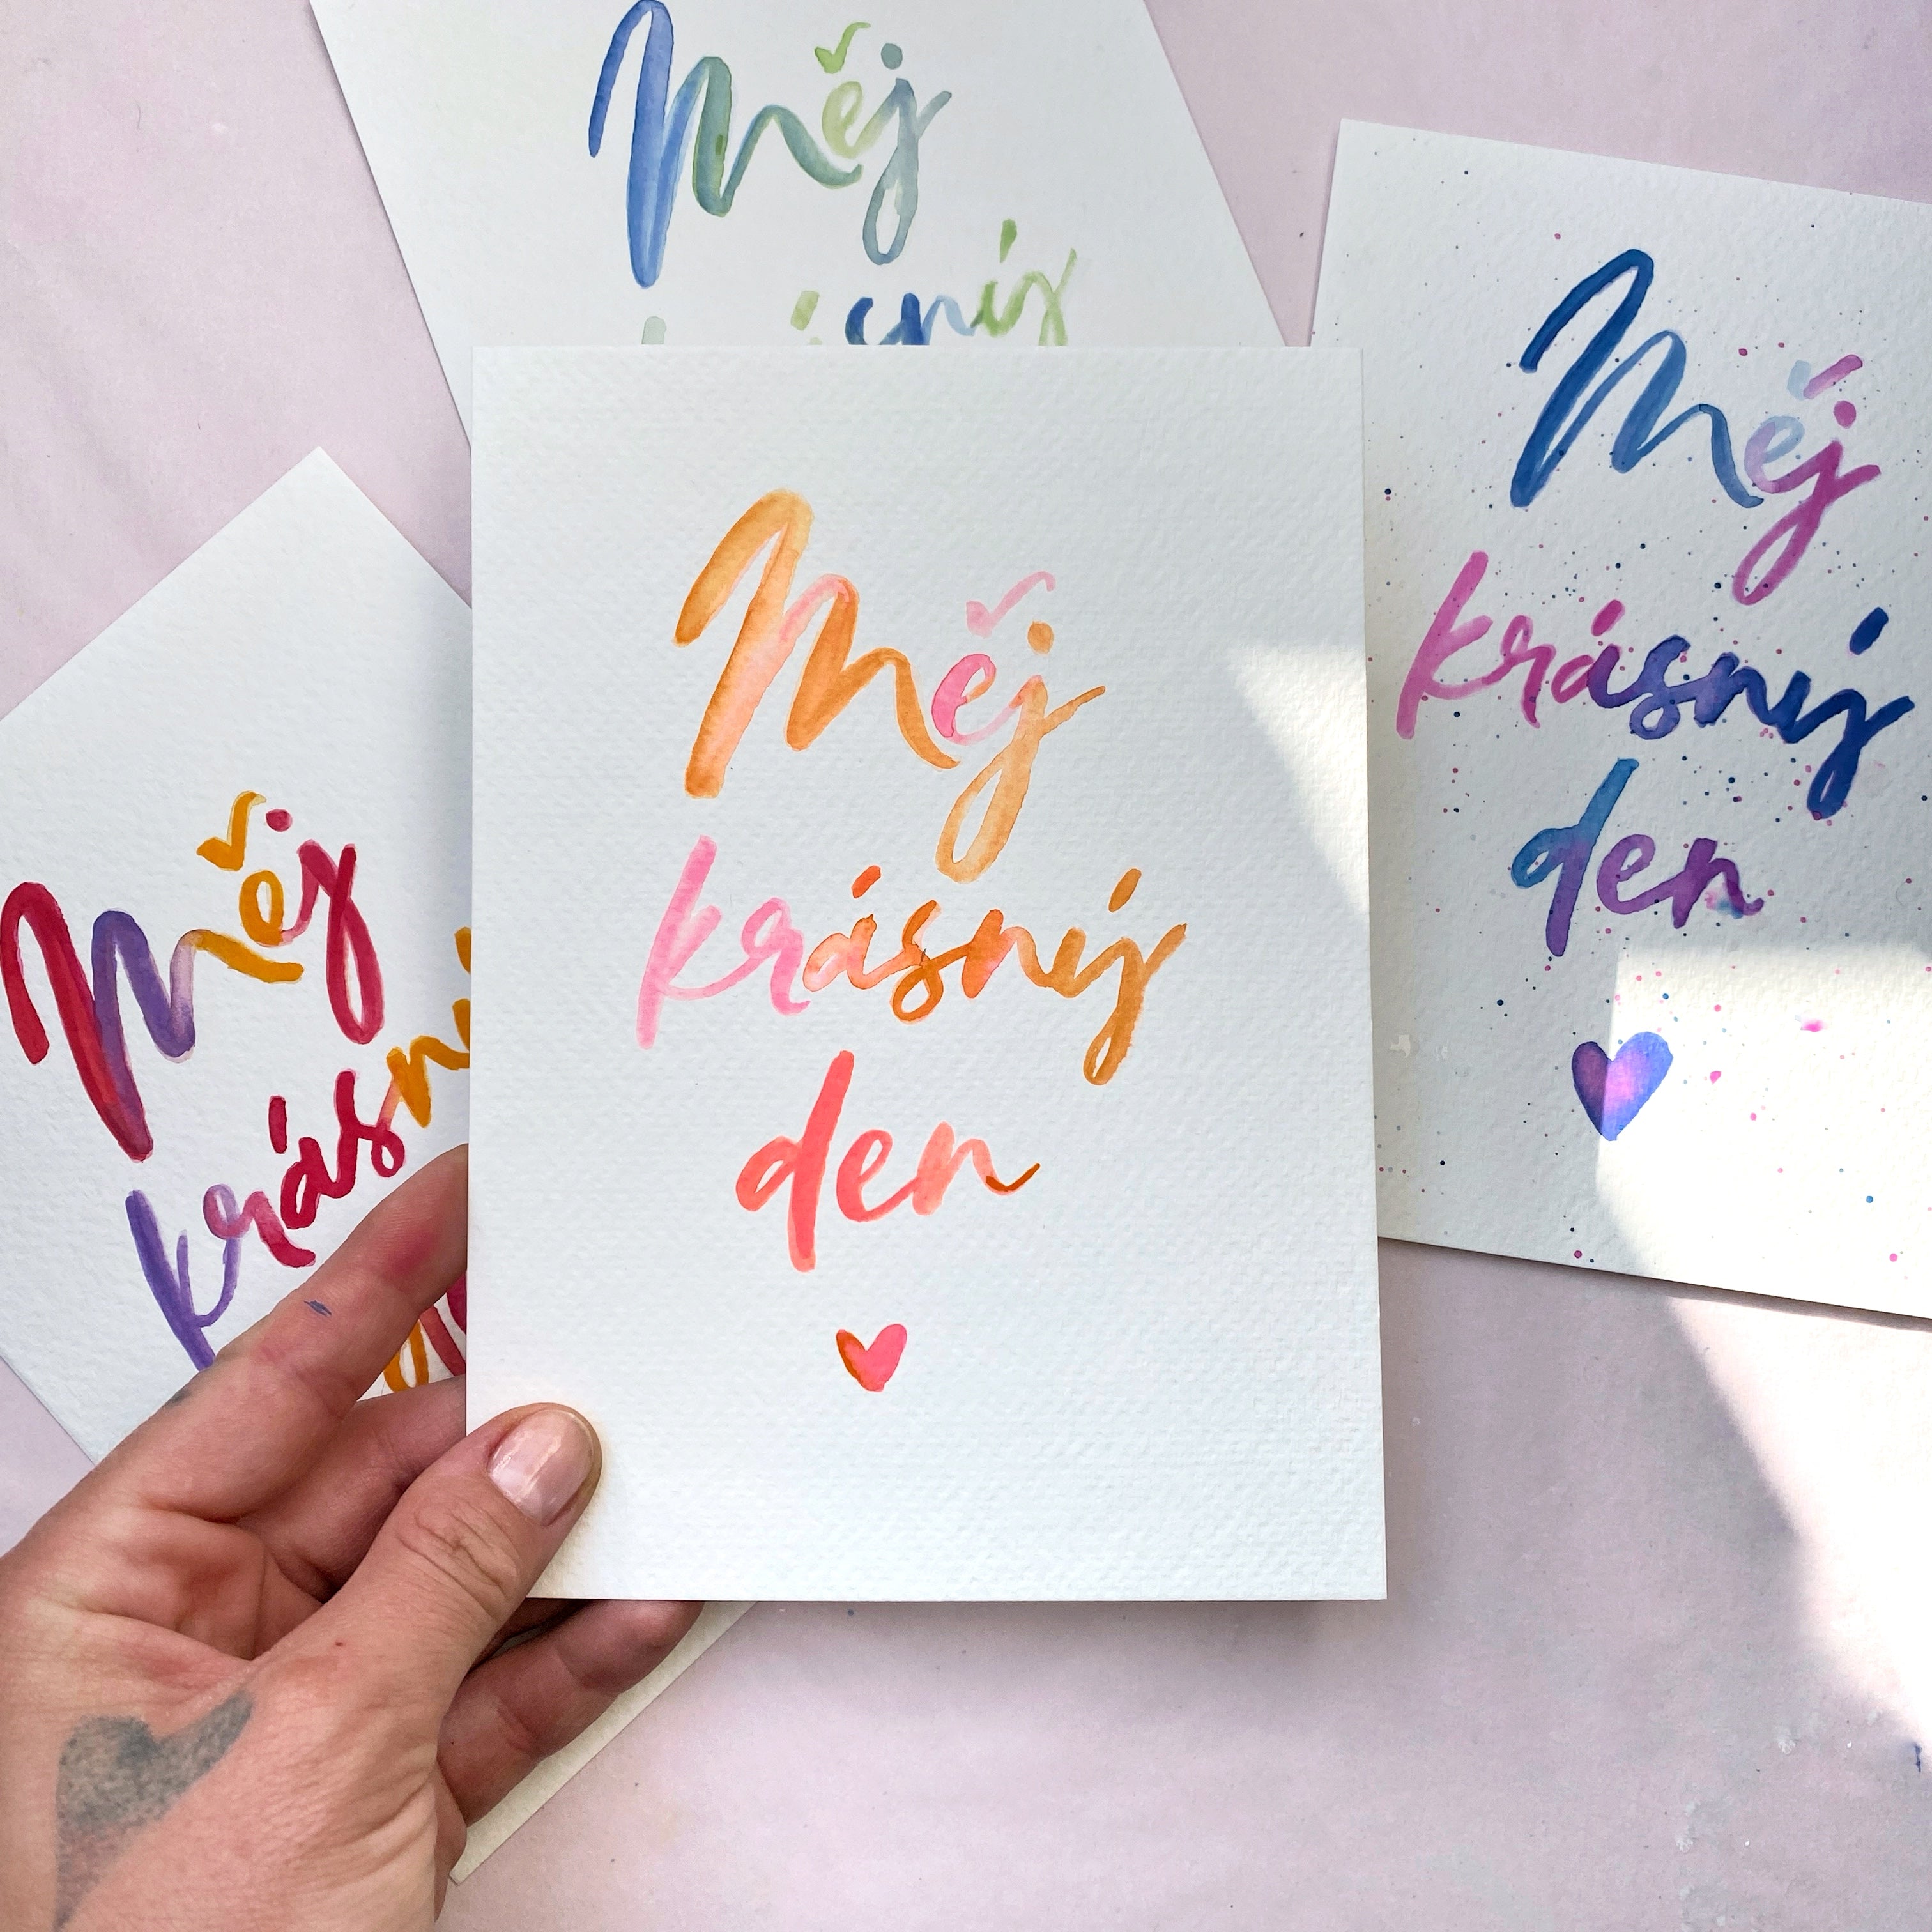 Měj
krásný
Měj
krásný
den
Měj
krásný
den
Měj
krásn